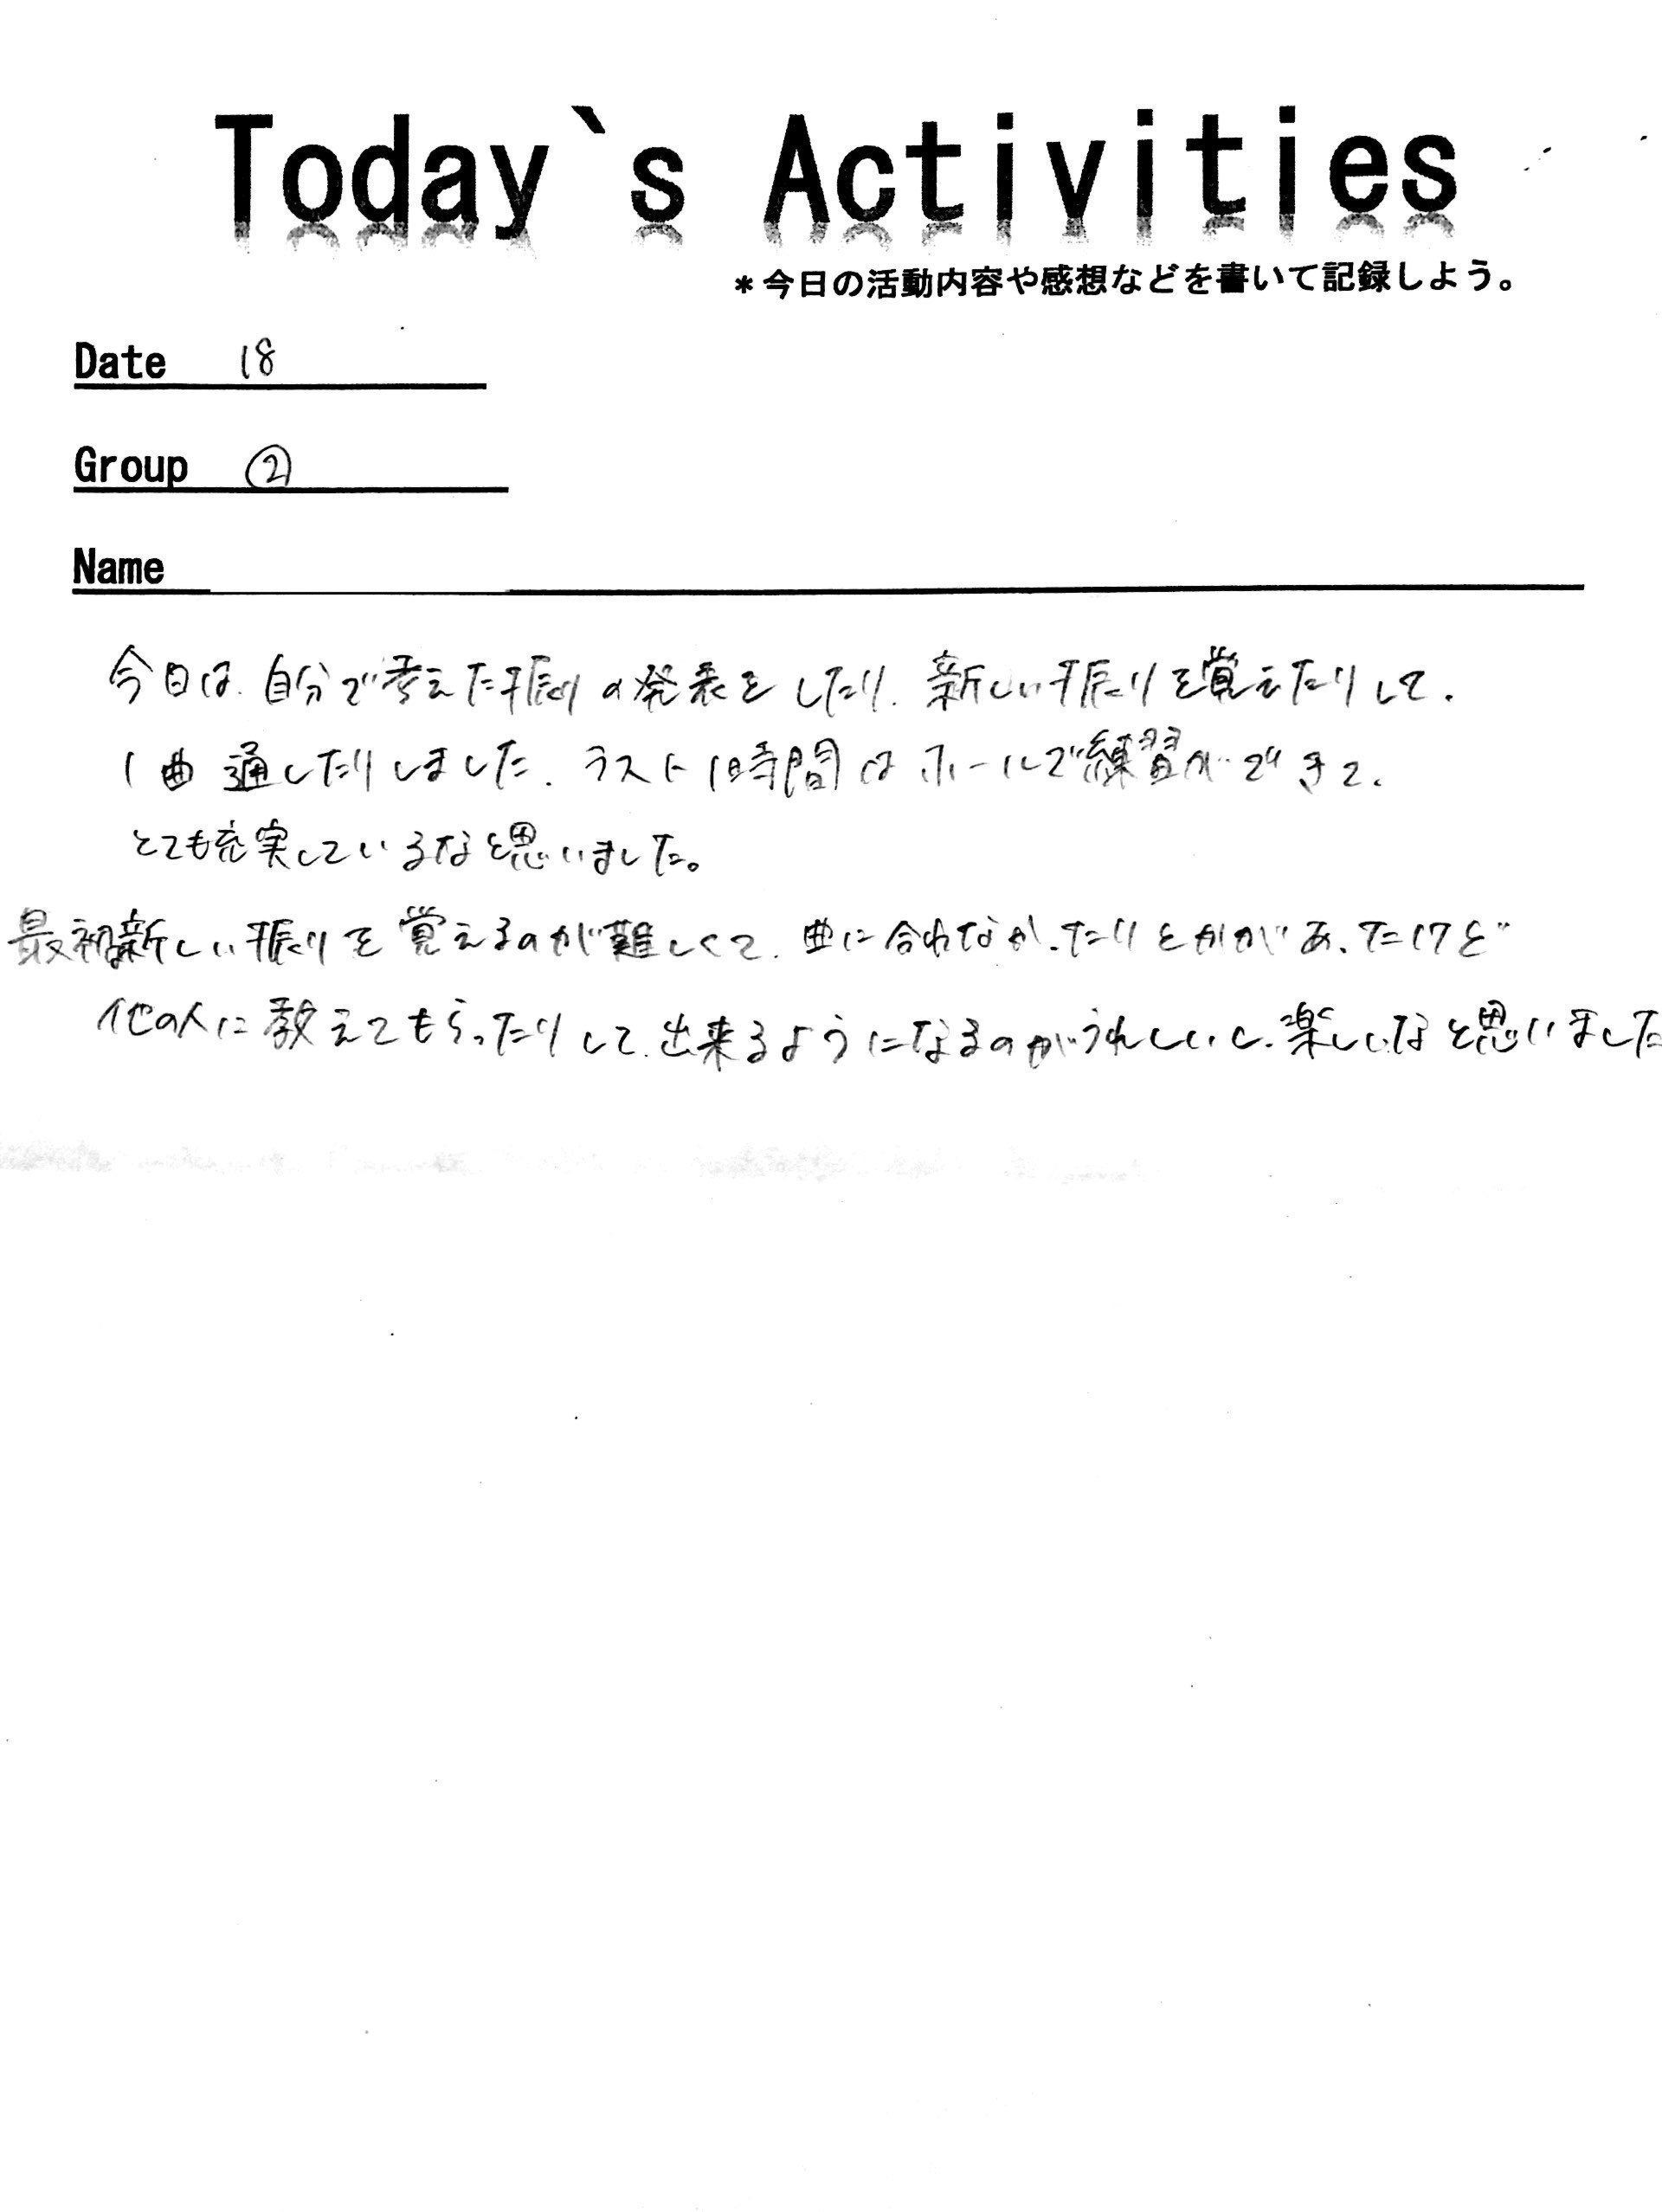 Today`s Activities
*今日の活動内容や感想などを書いて記録しよう。
Date 18
Group ②
Name
今日は、自分で考えた振りの発表をしたり、新しい振りを覚えたりして、
1曲通したりしました。ラスト1時間はホールで練習ができて、
とても充実しているなと思いました。
最初新しい振りを覚えるのが難しくて、曲に合わなかったりとかがあったけど
他の人に教えてもらったりして、出来るようになるのがうれしいし、楽しいなと思いました